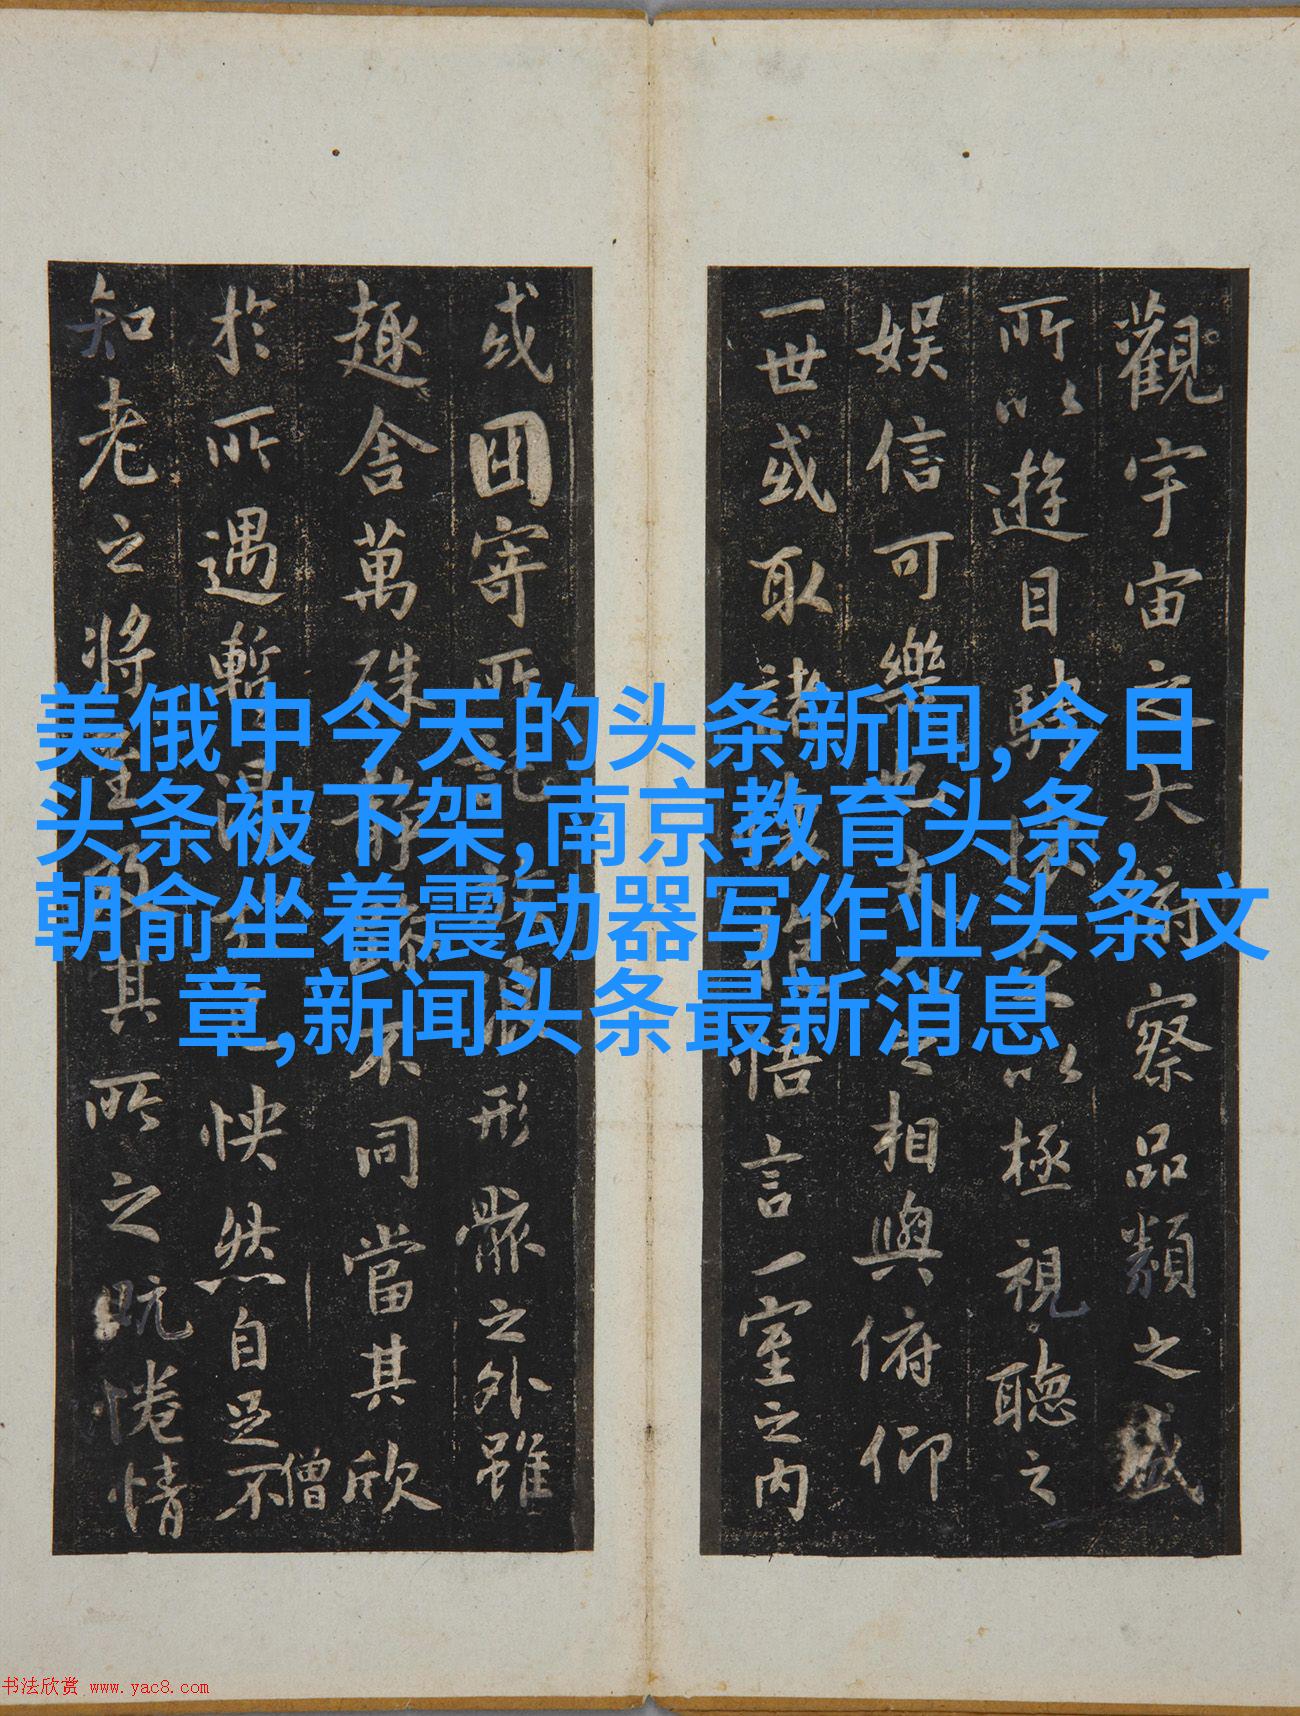 觀宇宙之大俯察品類之盛
所以遊目騁懷足以極視聽之
娛信可樂也夫人之相與俯仰
一世或取諸懷抱悟言一室之內
或因寄所託放浪形骸之外雖
趣舍萬殊靜躁不同當其欣
於所遇暫得於己怏然自足不
僧
知老之將至及其所之既惓情
美俄中今天的头条新闻,今日
头条被下架,南京教育头条,
朝俞坐着震动器写作业头条文
章,新闻头条最新消息
书法欣赏 www.yac8.com